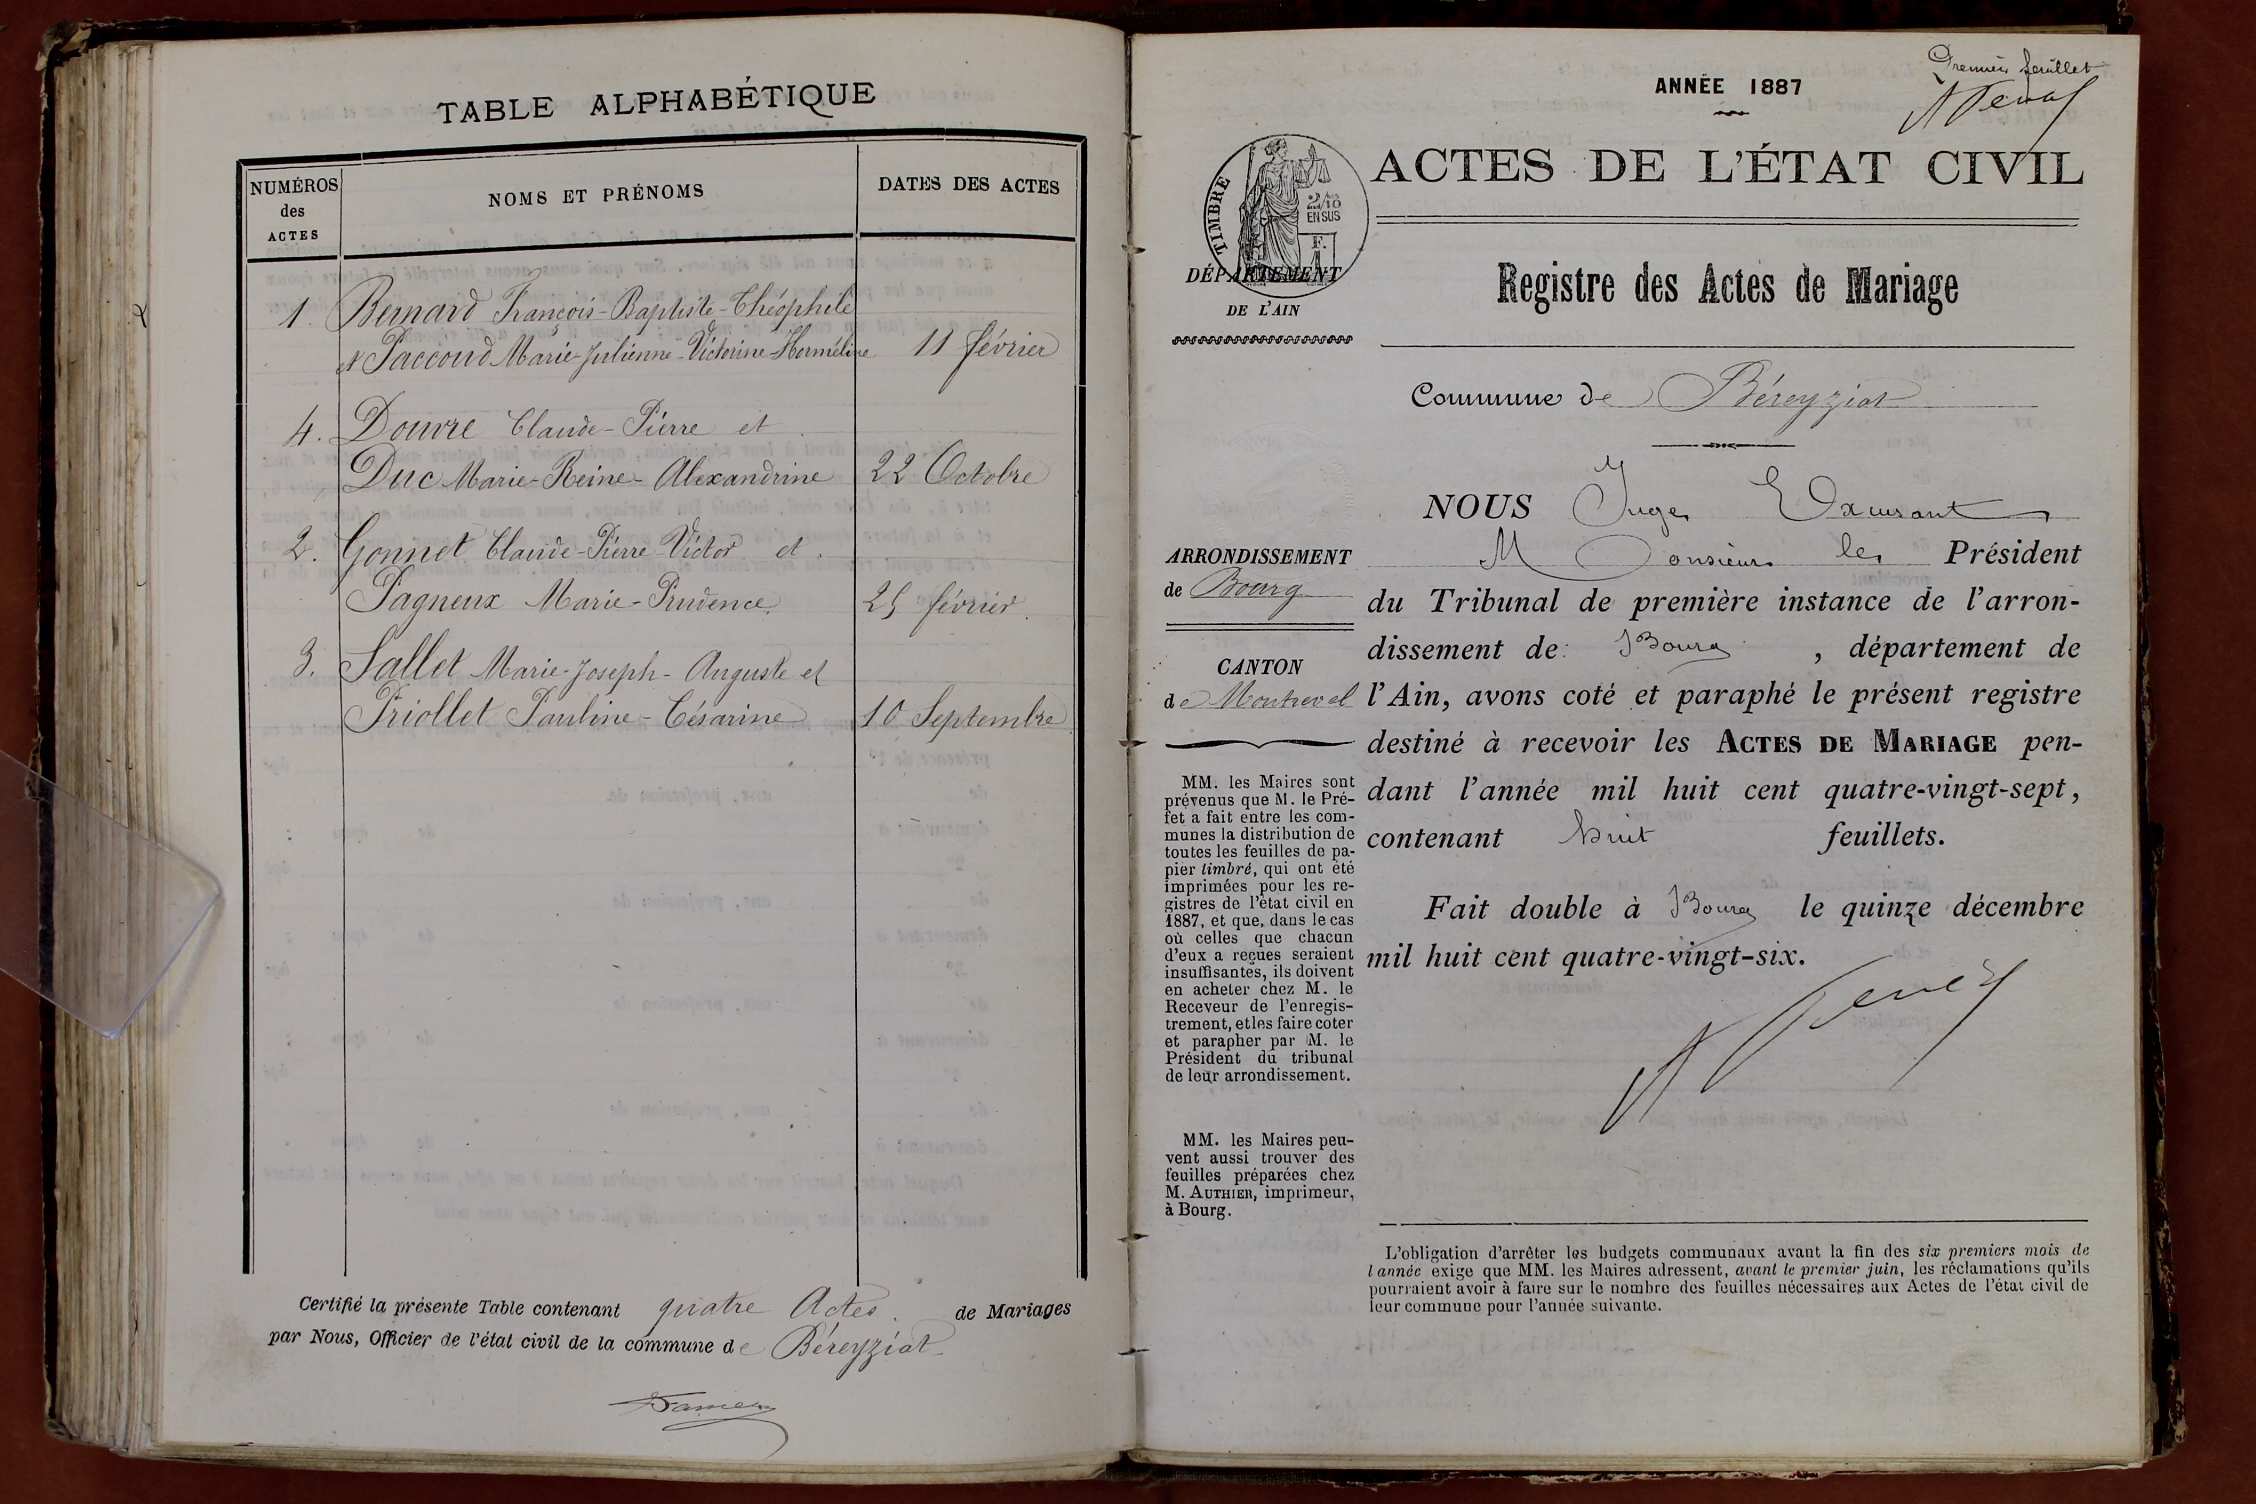 TABLE ALPHABÉTIQUE
NUMÉROS
des
ACTES
NOMS ET PRÉNOMS
DATES DES ACTES
1. Bernard François-Baptiste-Théophile
et Paccoud Marie-Julienne-Victorine-Herméline 11 février
4. Douvre Claude-Pierre et
Duc Marie-Reine-Alexandrine 22 Octobre
2. Gonnet Claude-Pierre-Victor et
Pagneux Marie-Prudence 25 février.
3. Sallet Marie-Joseph-Auguste et
Priollet Pauline-Césarine 10 Septembre
Certifié la présente Table contenant quatre Actes. de Mariages
par Nous, Officier de l'état civil de la commune de Béreyziat
Premier feuillet
ANNÉE 1887
ACTES DE L'ÉTAT CIVIL
TIMBRE
2/10
EN SUS
F.
1
DÉPARTEMENT
DE L'AIN
Registre des Actes de Mariage
Commune de Béreyziat
ARRONDISSEMENT
de Bourg
CANTON
de Montrevel
MM. les Maires sont
prévenus que M. le Pré-
fet a fait entre les com-
munes la distribution de
toutes les feuilles de pa-
pier timbré, qui ont été
imprimées pour les re-
gistres de l'état civil en
1887, et que, dans le cas
où celles que chacun
d'eux a reçues seraient
insuffisantes, ils doivent
en acheter chez M. le
Receveur de l'enregis-
trement, et les faire coter
et parapher par M. le
Président du tribunal
de leur arrondissement.
MM. les Maires peu-
vent aussi trouver des
feuilles préparées chez
M. AUTHIER, imprimeur,
à Bourg.
NOUS Juge
Monsieur le Président
du Tribunal de première instance de l'arron-
dissement de Bourg, département de
l'Ain, avons coté et paraphé le présent registre
destiné à recevoir les ACTES DE MARIAGE pen-
dant l'année mil huit cent quatre-vingt-sept,
contenant huit feuillets.
Fait double à Bourg le quinze décembre
mil huit cent quatre-vingt-six.
L'obligation d'arrêter les budgets communaux avant la fin des six premiers mois de
l'année exige que MM. les Maires adressent, avant le premier juin, les réclamations qu'ils
pourraient avoir à faire sur le nombre des feuilles nécessaires aux Actes de l'état civil de
leur commune pour l'année suivante.